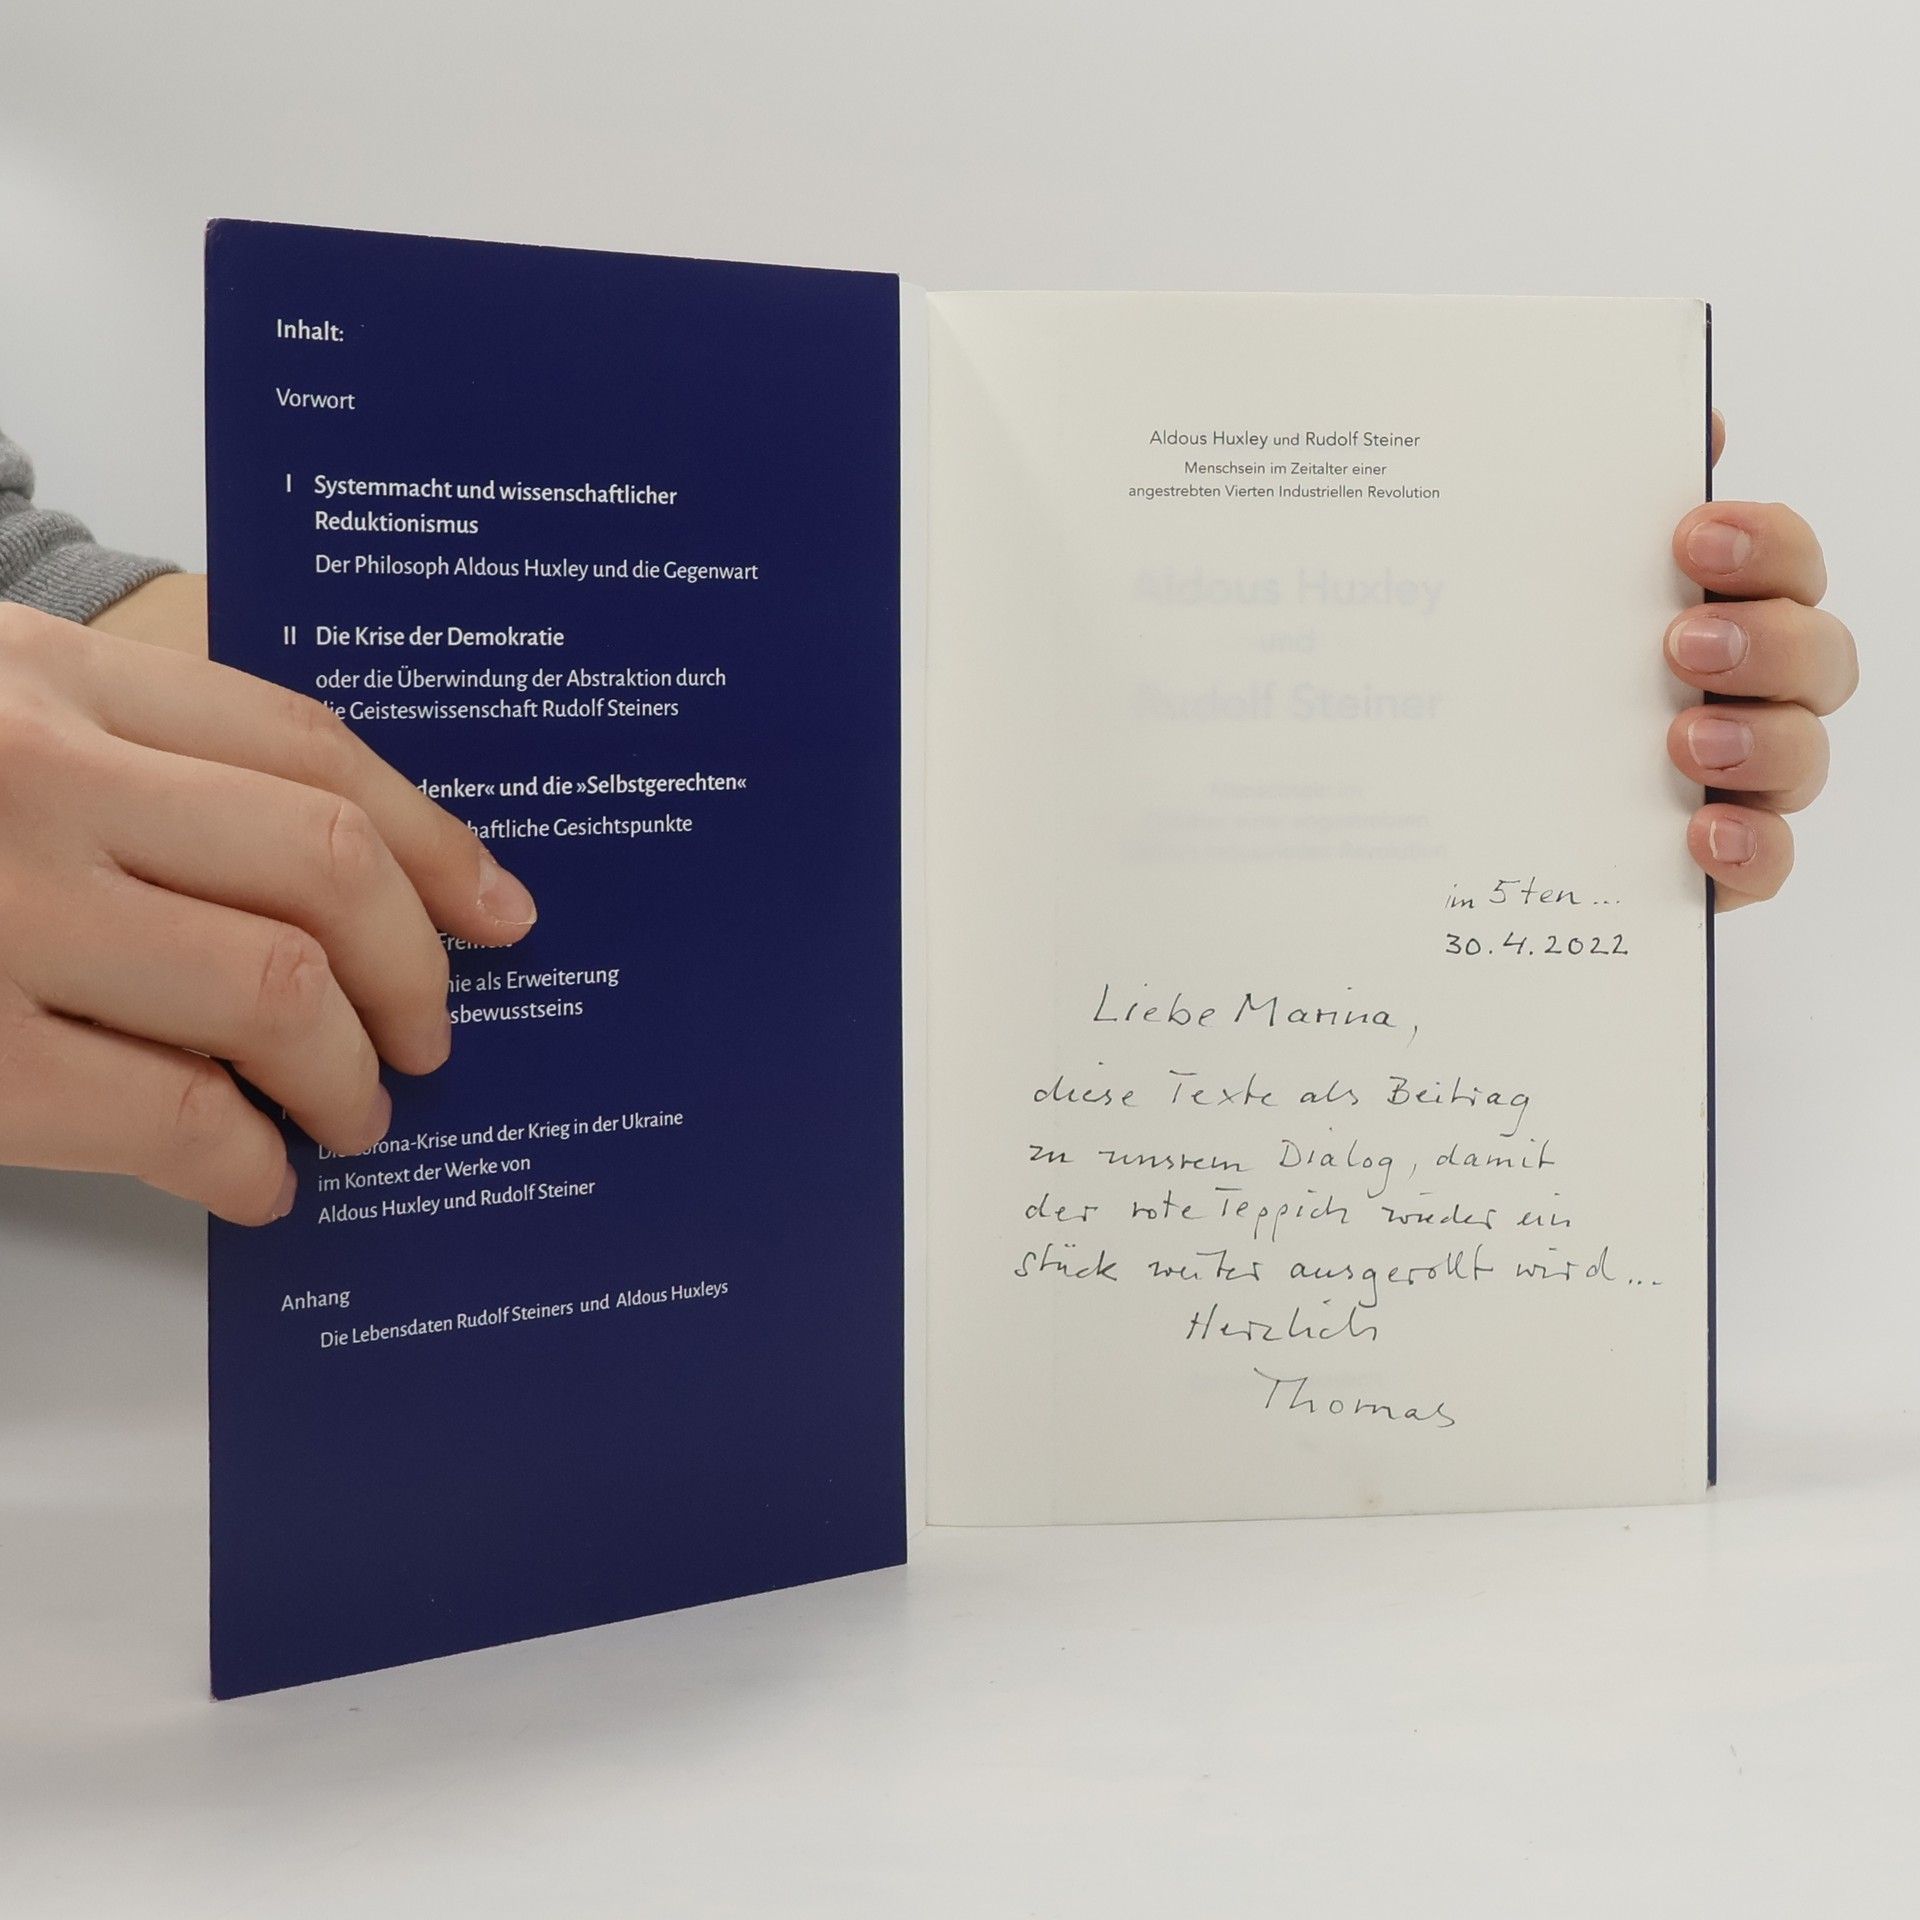 Inhalt:
Vorwort
I Systemmacht und wissenschaftlicher
Reduktionismus
Der Philosoph Aldous Huxley und die Gegenwart
II Die Krise der Demokratie
oder die Überwindung der Abstraktion durch
die Geisteswissenschaft Rudolf Steiners
denker« und die »Selbstgerechten«
haftliche Gesichtspunkte
nie als Erweiterung
sbewusstseins
Die Corona-Krise und der Krieg in der Ukraine
im Kontext der Werke von
Aldous Huxley und Rudolf Steiner
Anhang
Die Lebensdaten Rudolf Steiners und Aldous Huxleys
Aldous Huxley und Rudolf Steiner
Menschsein im Zeitalter einer
angestrebten Vierten Industriellen Revolution
Aldous Huxley
und
Rudolf Steiner
im 5ten ...
30.4.2022
Liebe Marina,
diese Texte als Beitrag
zu unsrem Dialog, damit
der rote Teppich wieder ein
Stück weiter ausgerollt wird...
Herzlich
Thomas